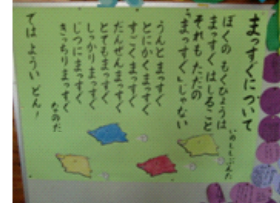 まっすぐについて
いのししぶんた
ぼくの もくひょうは
まっすぐ はしること
それも ただの
「まっすぐ」じゃない
うんと まっすぐ
とにかく まっすぐ
すごく まっすぐ
だんぜん まっすぐ
とても まっすぐ
しっかり まっすぐ
じつに まっすぐ
きっちり まっすぐ
なのだ
では ようい どん!